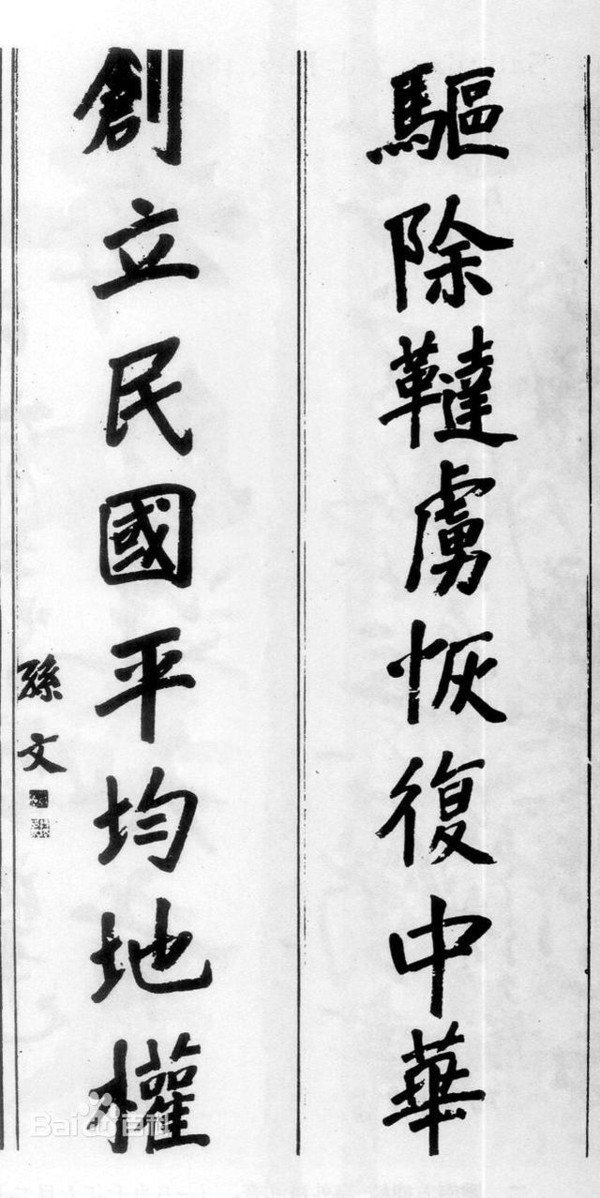 驅除韃虜恢復中華
創立民國平均地權
孫文
Bai百科